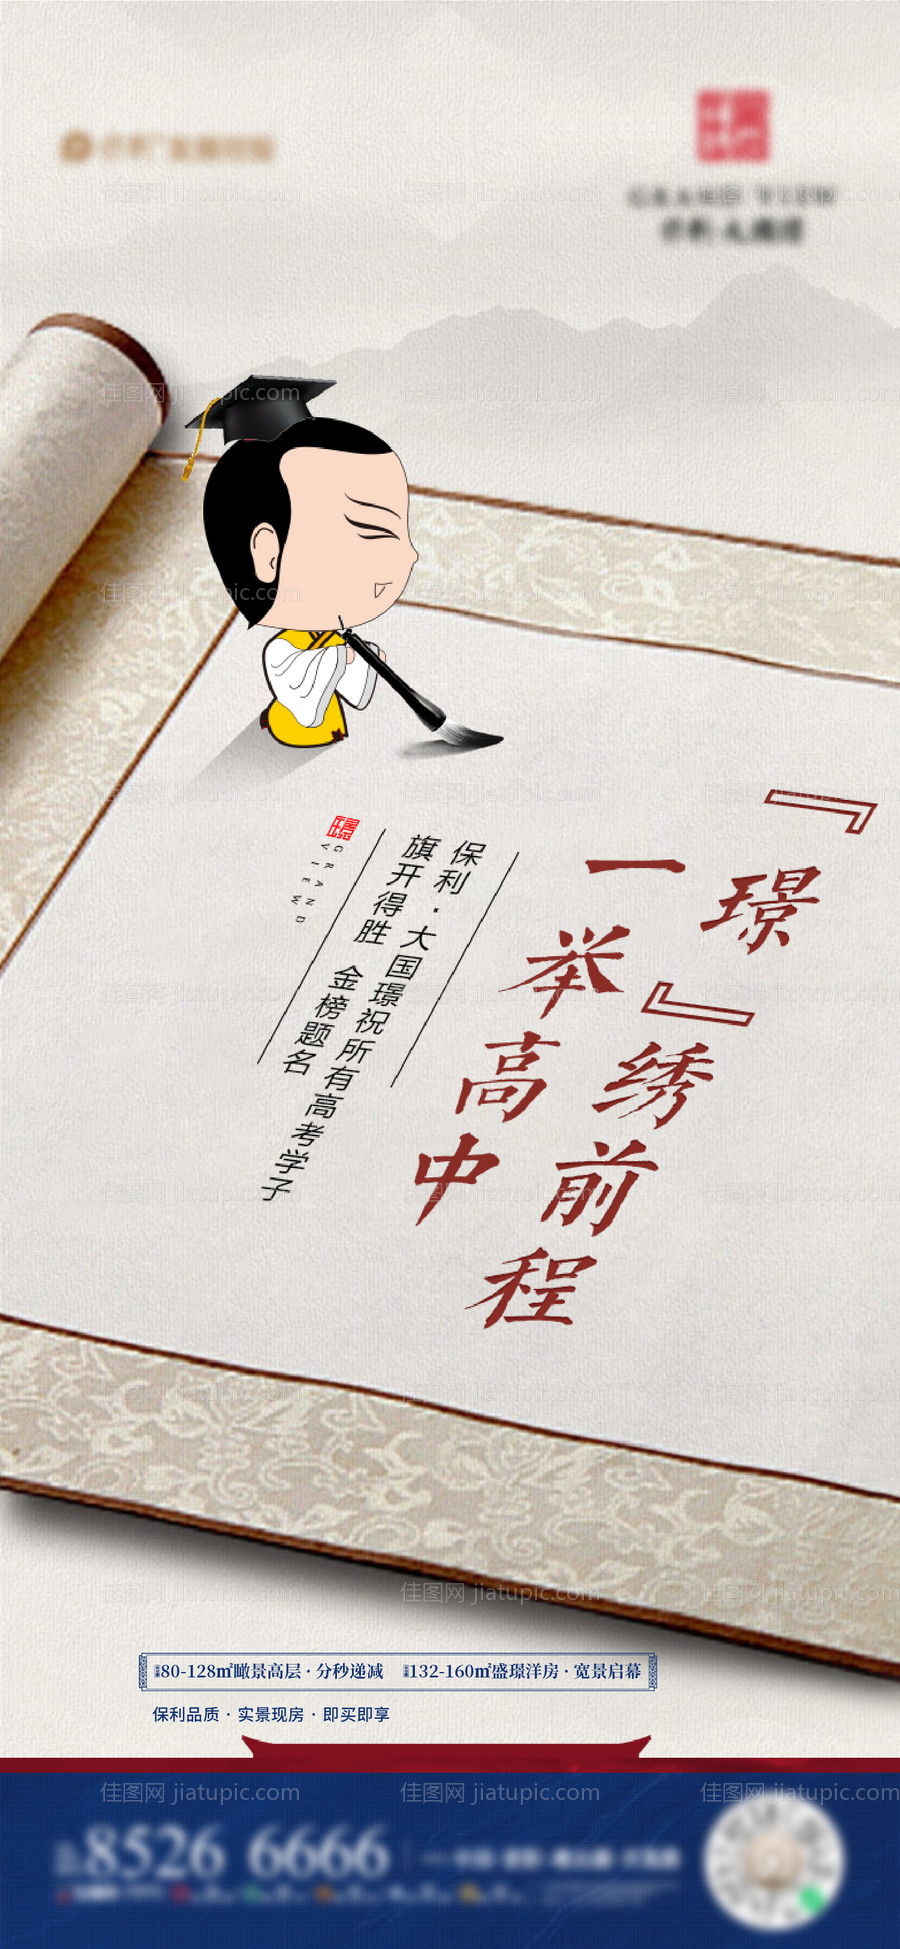 『璟』绣前程
一举高中
保利·大国璟祝所有高考学子
旗开得胜 金榜题名
GRAND
VIEW
80-128㎡瞰景高层·分秒递减 132-160㎡盛璟洋房·宽景启幕
保利品质·实景现房·即买即享
8526 6666
佳图网 jiatupic.com